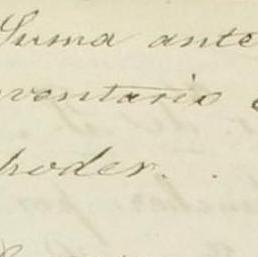 Suma ante
nventario
poder.